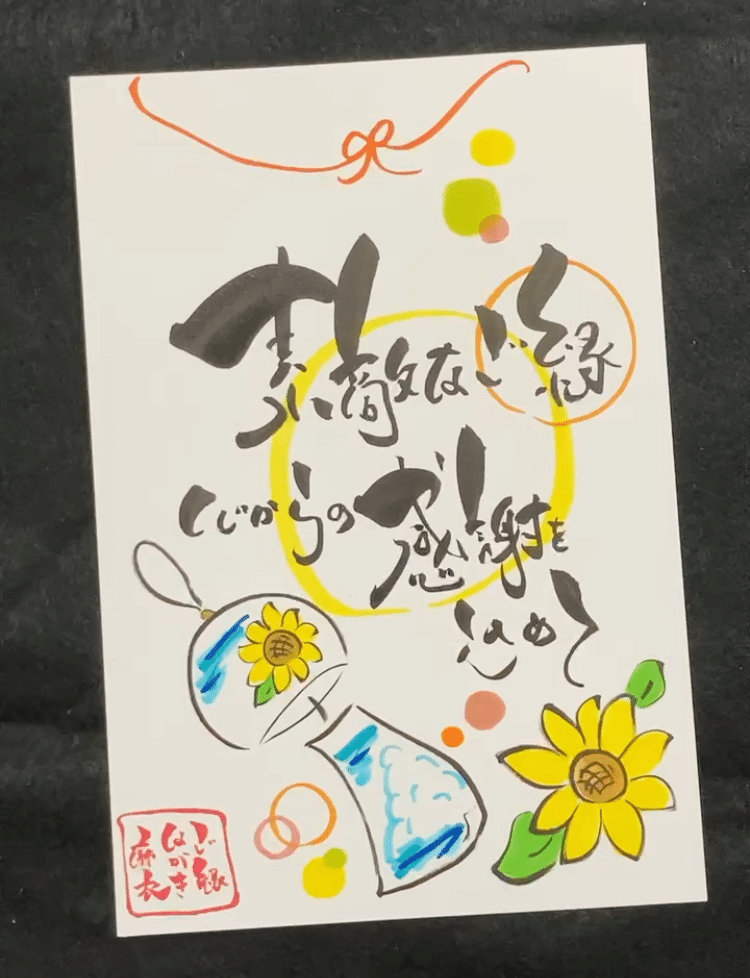 素敵なご縁
心からの感謝を
込めて
ご縁
はがき
麻衣